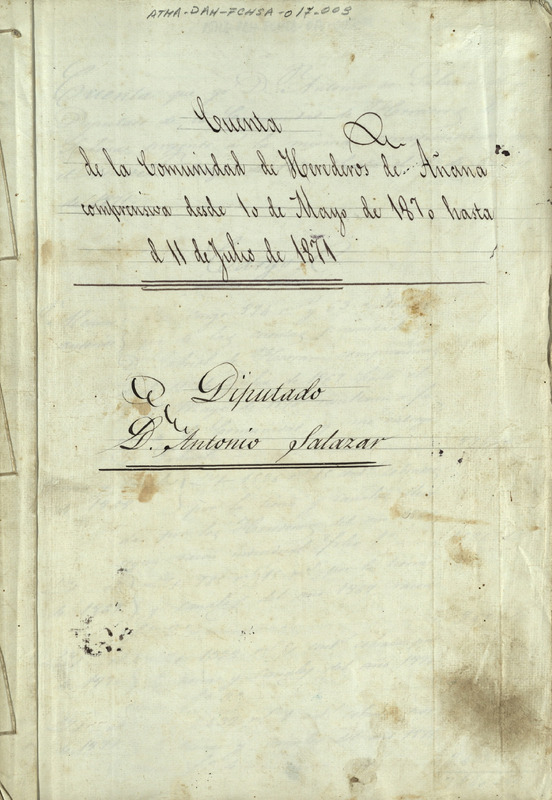 ATHA-DAH-FCHSA-017-009
Cuenta
de la Comunidad de Herederos de Añana
comprensiva desde 10 de Mayo de 1870 hasta
el 11 de Julio de 1871
Diputado
D. Antonio Salazar